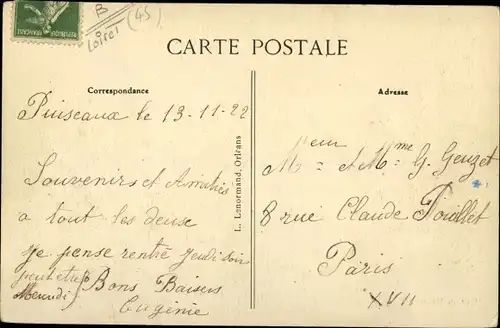 B
Loiret (45)
REPUBLIQUE FRANÇAISE
CARTE POSTALE
Correspondance
Adresse
Puiseaux le 13-11-22
Souvenirs et Amitiés
a tout les deuse
je pense rentré jeudi soir
peut être
Bons Baisers
Eugénie
L. Lenormand, Orléans
Meur
M = et Mme G. Geuzet
8 rue Claude Pouillet
Paris
XVII